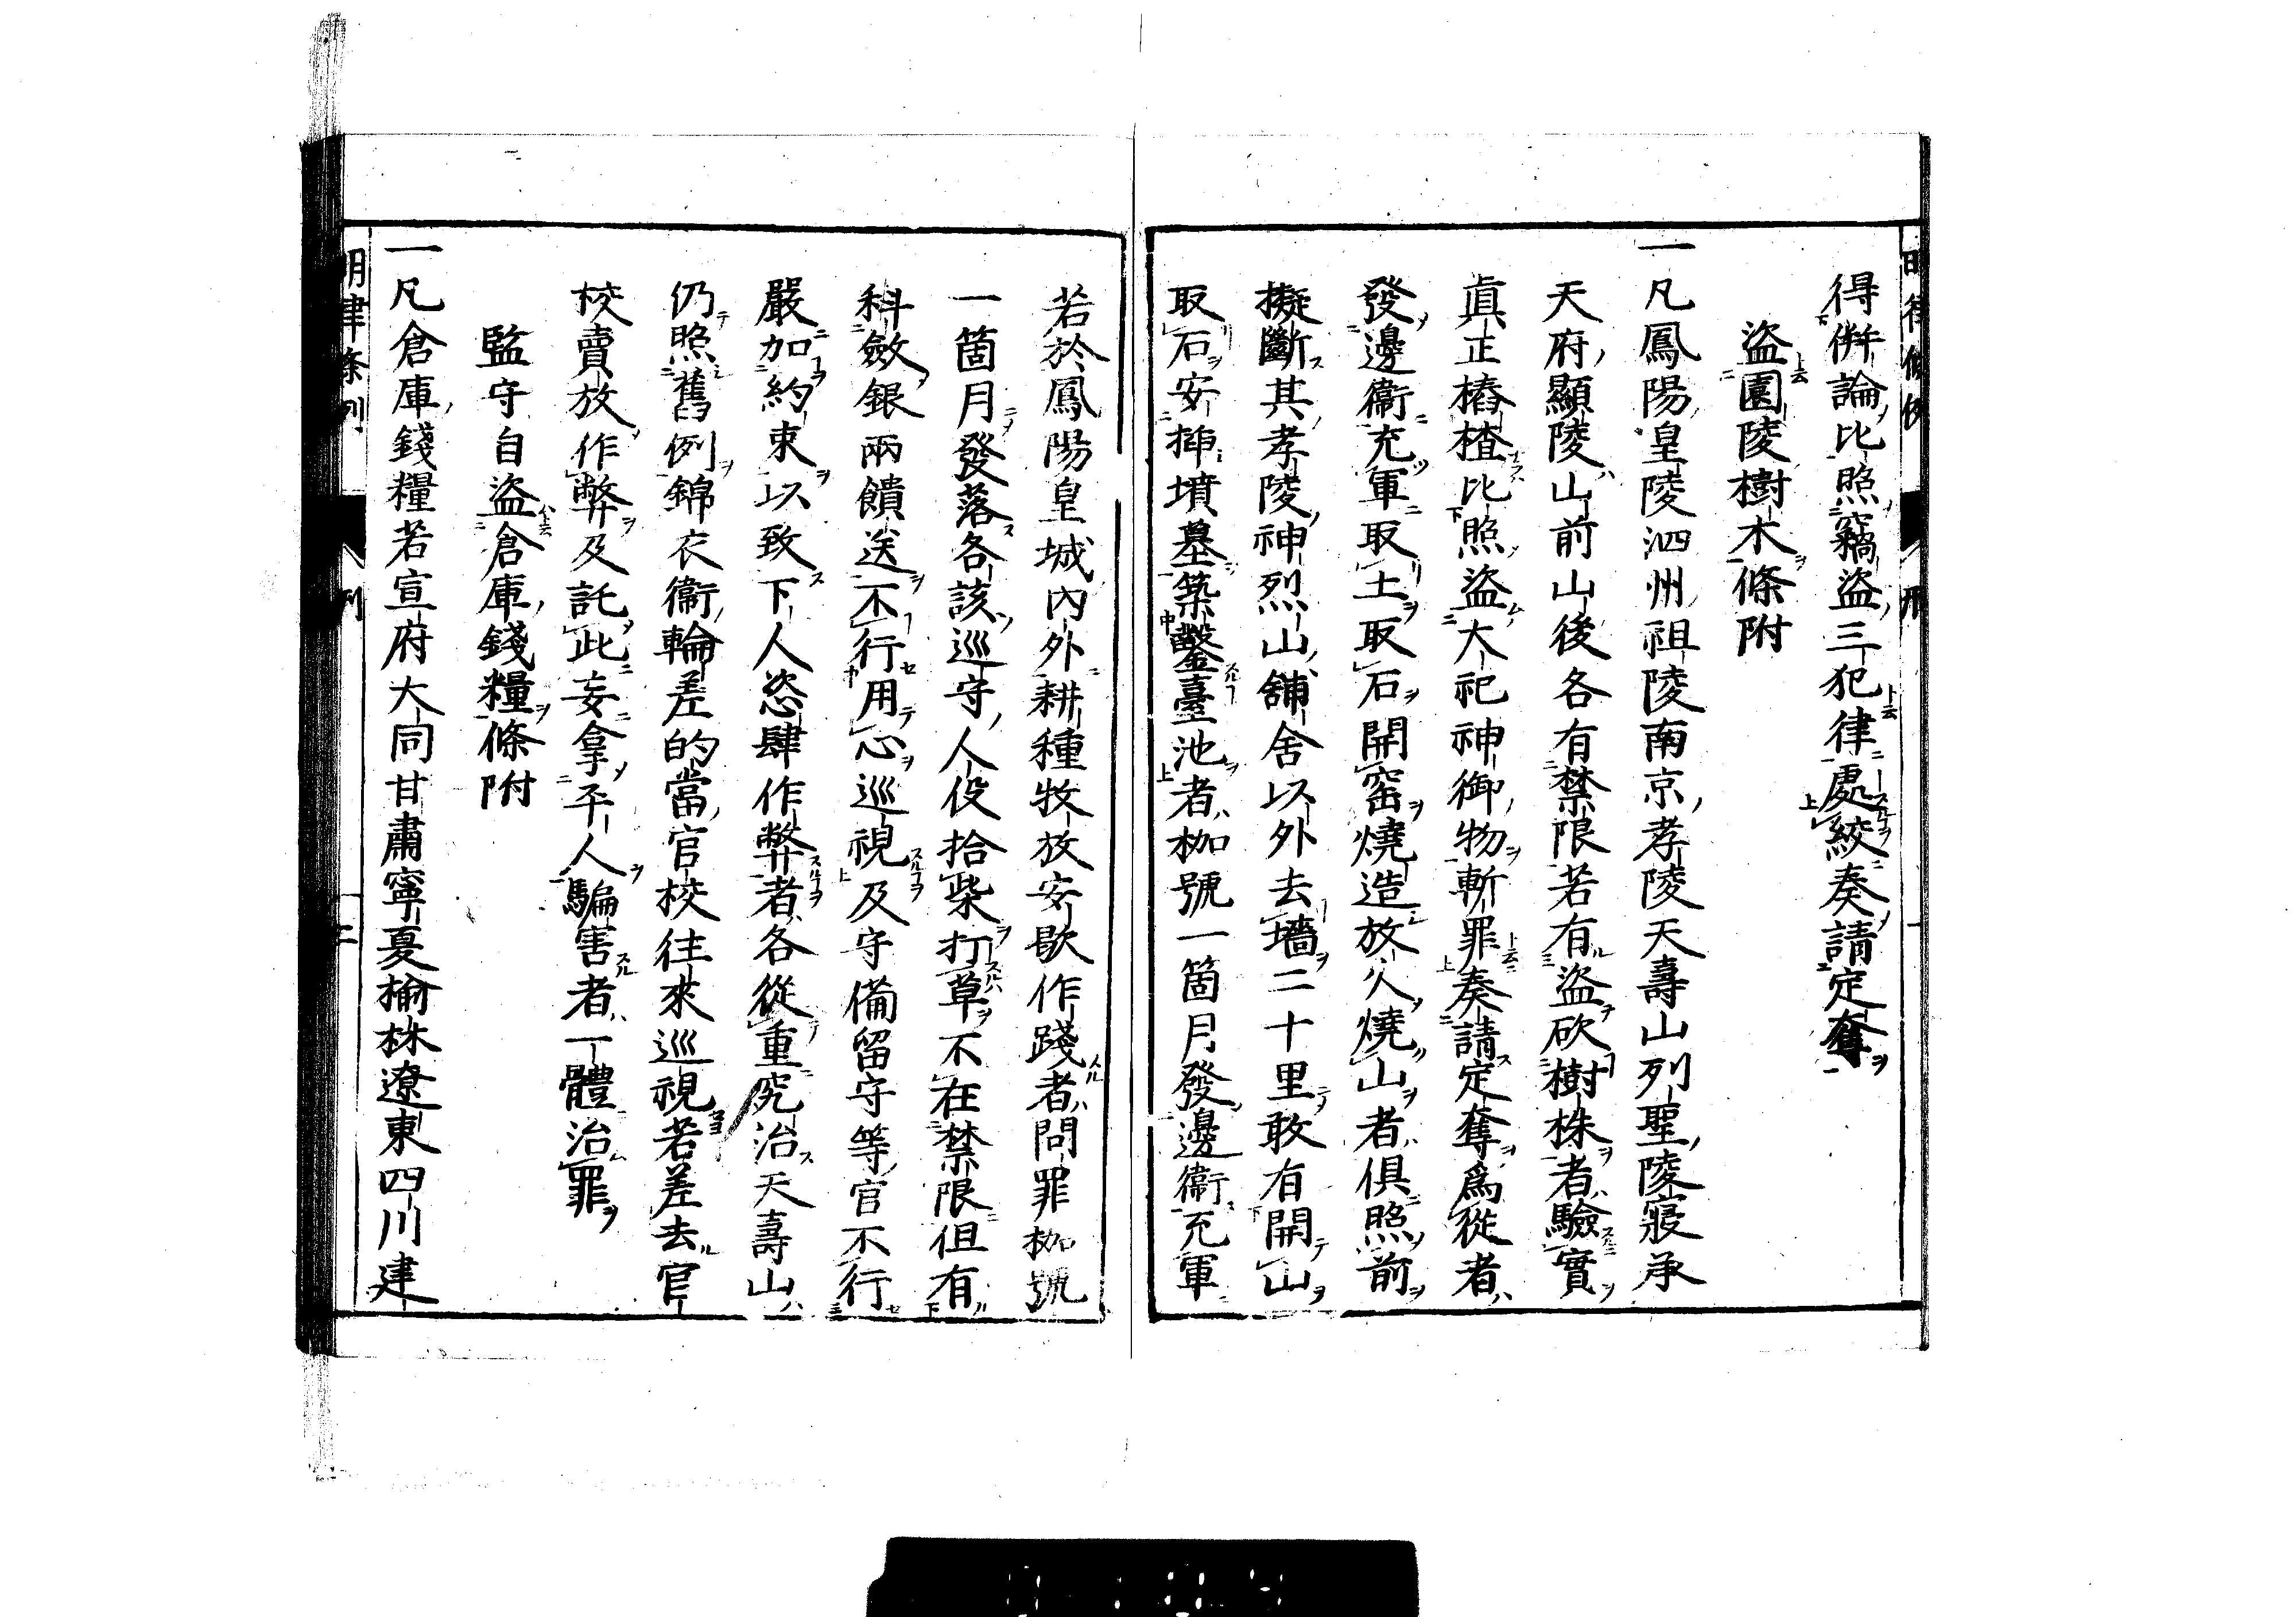 得併論比照竊盜三犯律處絞奏請定奪
盜園陵樹木條附
一凡鳳陽皇陵泗州祖陵南京孝陵天壽山列聖陵寢承
天府顯陵山前山後各有禁限若有盜砍樹株者驗實
眞正樁楂比照盜大祀神御物斬罪奏請定奪爲從者
發邊衞充軍取土取石開窑燒造放火燒山者俱照前
擬斷其孝陵神烈山舖舍以外去墻二十里敢有開山
取石安揷墳墓築鑿臺池者枷號一箇月發邊衞充軍
若於鳳陽皇城內外耕種牧放安歇作踐者問罪枷號
一箇月發落各該巡守人役拾柴打草不在禁限但有
科斂銀兩饋送不行用心巡視及守備留守等官不行
嚴加約束以致下人恣肆作弊者各從重究治天壽山
仍照舊例錦衣衞輪差的當官校往來巡視若差去官
校賣放作弊及託此妄拿平人騙害者一體治罪
監守自盜倉庫錢糧條附
一凡倉庫錢糧若宣府大同甘肅寧夏榆林遼東四川建
明律條例